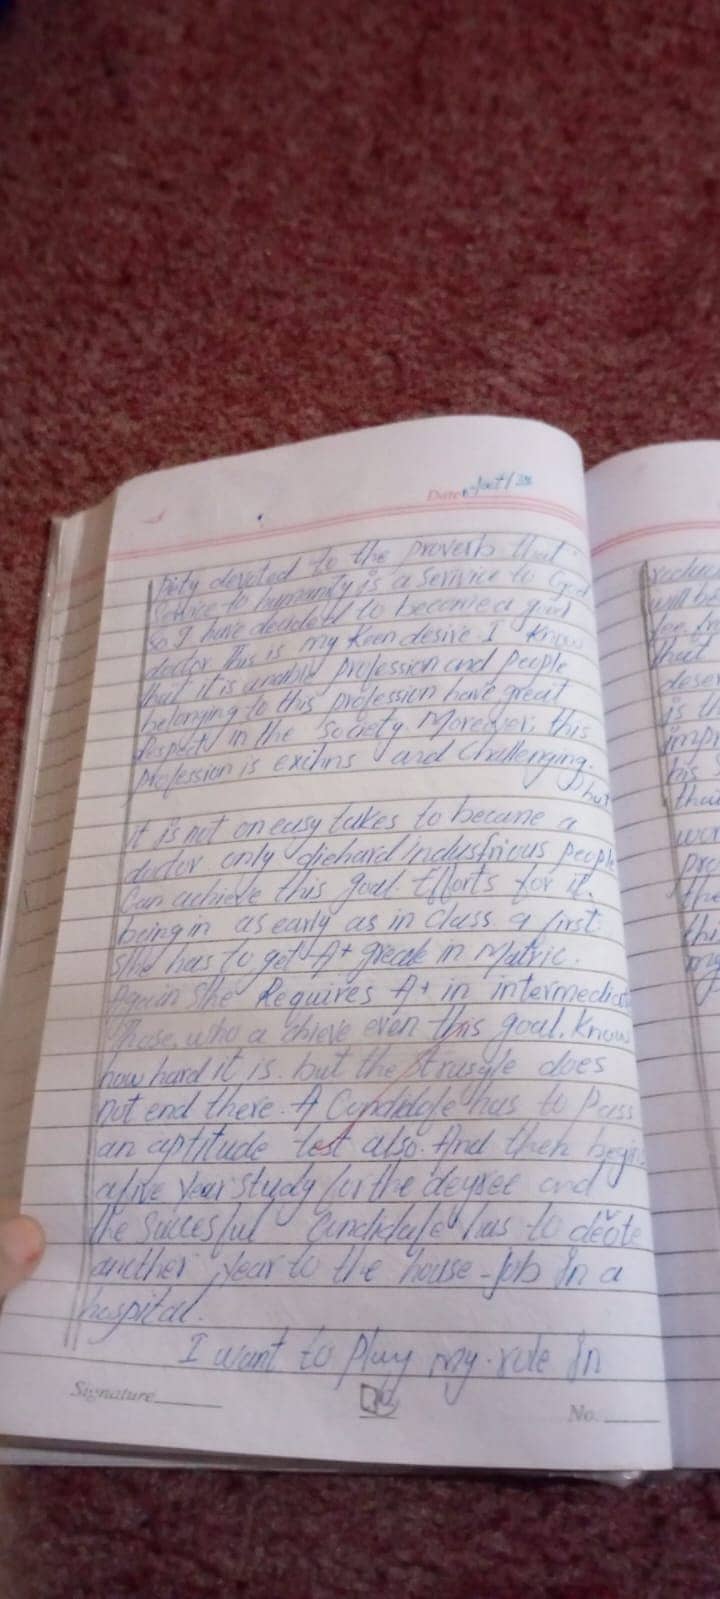 Date
pity devoted to the proverb that
Service to humanity is a serivice to God
so I have decided to become a good
doctor This is my Keen desire I Know
that it is anable profession and people
belonging to this profession have great
Respect in the Society. Moreover, this
profession is exitins and challenging.
but
it is not on easy takes to became a
doctor only diehard industrious people
Can achieve this goal. Efforts for it.
being in as early as in class 9 first.
S/he has to get A+ greade in Matric.
Again S/he Requires A+ in intermediate
Those, who a chieve even this goal, Know
how hard it is. but the strusgle does
not end there. A Condidate has to Pass
an aptitude test also. And then begin
a five year study for the degree and
the Succesful Candidate has to deote
another year to the house-job in a
hospital.
I want to play my role in
Signature
No.
reduc
will be
that
deser
is th
impr
his
than
wor
pro
the
thi
my